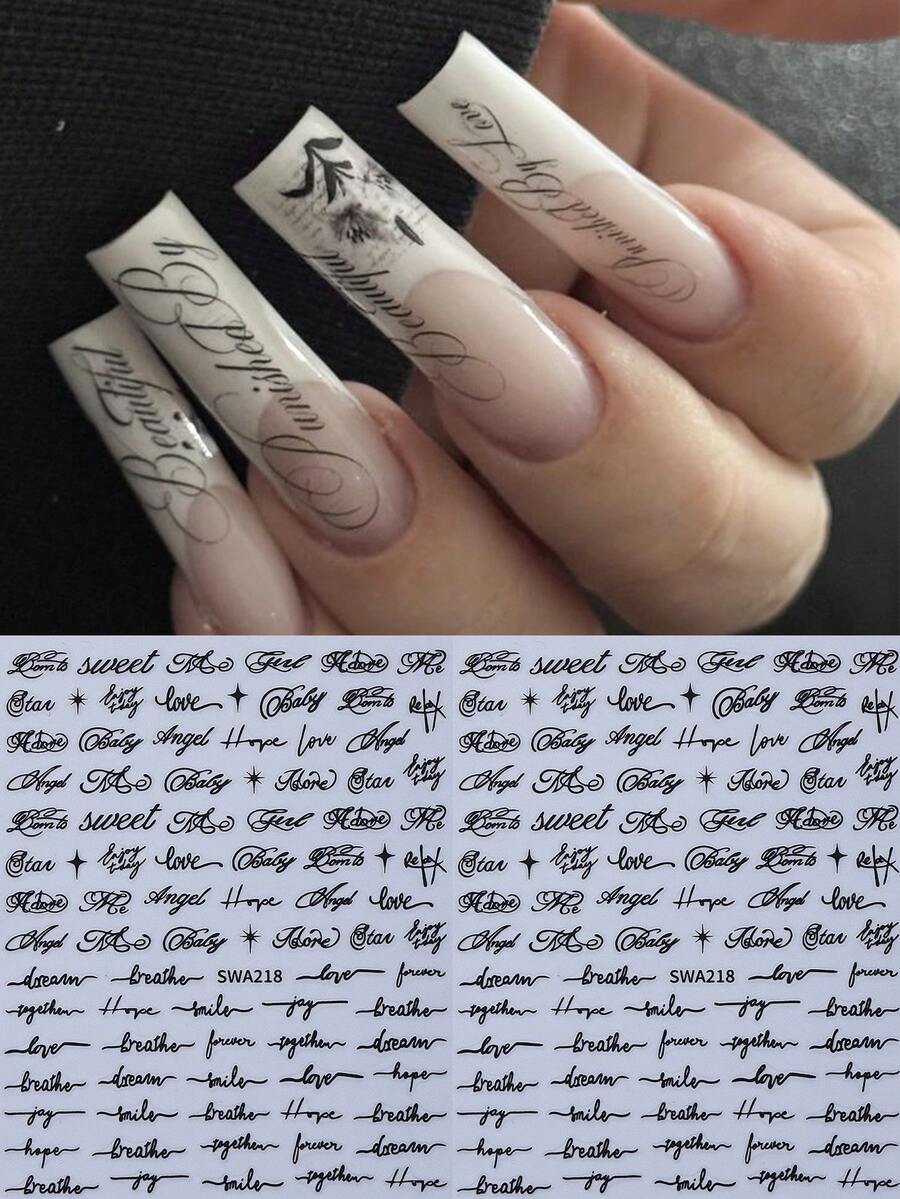 Punished By Love
Beautiful
Punished By
Beautiful
Born to sweet Girl Adore Me Born to sweet Girl Adore Me
Star Enjoy today love Baby Born to Relax Star Enjoy today love Baby Born to Relax
Adore Baby Angel Hope love Angel Adore Baby Angel Hope love Angel
Angel Baby Star Enjoy today Angel Baby Star Enjoy today
Born to sweet Girl Adore Me Born to sweet Girl Adore Me
Star Enjoy today love Baby Born to Relax Star Enjoy today love Baby Born to Relax
Adore Me Angel Hope Angel love Adore Me Angel Hope Angel love
Angel Baby Star Enjoy today Angel Baby Star Enjoy today
dream breathe SWA218 love forever dream breathe SWA218 love forever
together Hope smile joy breathe together Hope smile joy breathe
love breathe forever together dream love breathe forever together dream
breathe dream smile love hope breathe dream smile love hope
joy smile breathe Hope breathe joy smile breathe Hope breathe
hope breathe together forever dream hope breathe together forever dream
breathe joy smile together Hope breathe joy smile together Hope